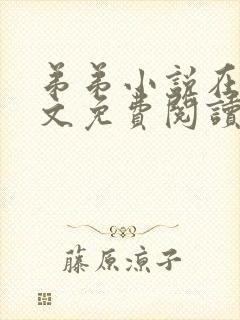 弟弟小説在
文免費閱讀
藤原涼子